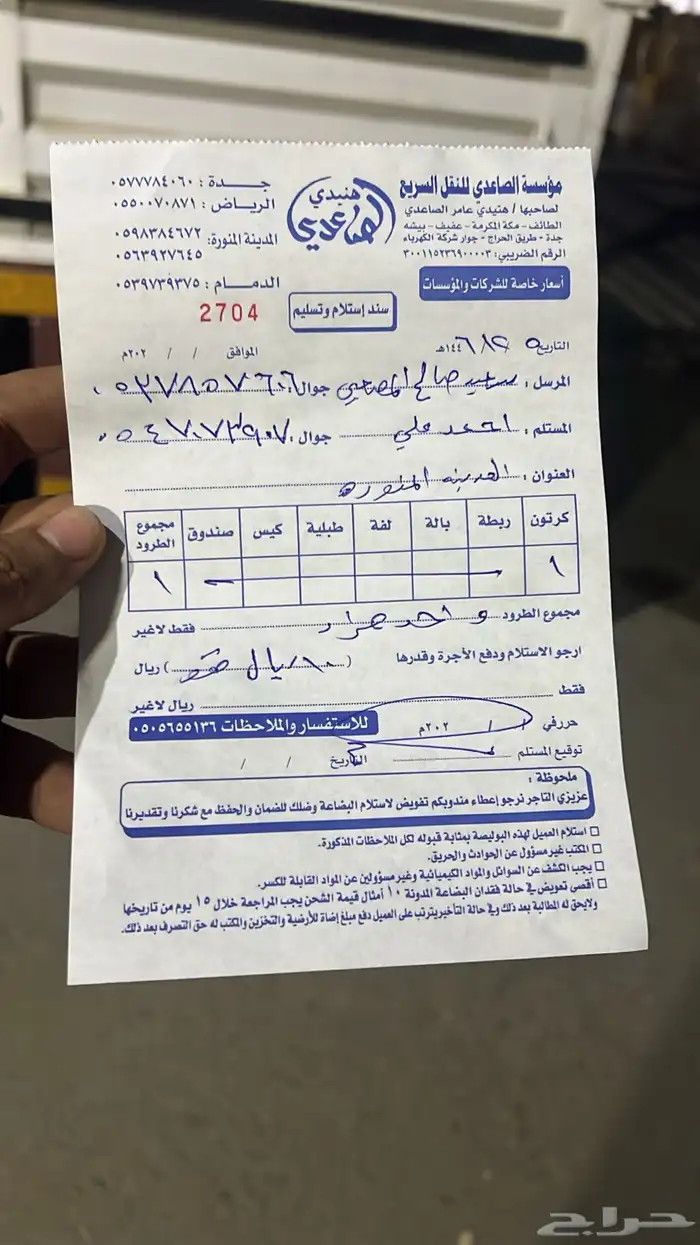 مؤسسة الصاعدي للنقل السريع
لصاحبها / هنيدي عامر الصاعدي
الطائف - مكة المكرمة - عفيف - بيشه
جدة - طريق الحراج - جوار شركة الكهرباء
الرقم الضريبي: ٣٠٠١١٥٢٣٦٩٠٠٠٠٣
أسعار خاصة للشركات والمؤسسات
هنيدي
الصاعدي
جــدة : ٠٥٧٧٧٨٤٠٦٠
الرياض : ٠٥٥٠٠٧٠٨٧١
المدينة المنورة: ٠٥٩٨٣٨٤٦٧٢
٠٥٦٣٩٢٧٦٤٥
الدمام : ٠٥٣٩٧٣٩٣٧٥
2704
سند إستلام وتسليم
التاريخ / / ١٤٤٦هـ الموافق / / ٢٠٢م
المرسل : سعيد صالح جوال :
المستلم : احمد علي جوال : ٠٥٤٧٠٧٣٩٠٧
العنوان : المدينه المنوره
كرتون ربطة بالة لفة طبلية كيس صندوق مجموع الطرود
١ ١
مجموع الطرود واحد فقط لاغير
ارجو الاستلام ودفع الأجرة وقدرها ( ريال ) ريال
فقط ريال لاغير
حرر في / / ٢٠٢م للاستفسار والملاحظات ٠٥٠٥٦٥٥١٣٦
توقيع المستلم التاريخ / /
ملحوظة :
عزيزي التاجر نرجو إعطاء مندوبكم تفويض لاستلام البضاعة وضلك للضمان والحفظ مع شكرنا وتقديرنا
استلام العميل لهذه البوليصة بمثابة قبوله لكل الملاحظات المذكورة.
المكتب غير مسؤول عن الحوادث والحريق.
يجب الكشف عن السوائل والمواد الكيميائية وغير مسؤولين عن المواد القابلة للكسر.
أقصى تعويض في حالة فقدان البضاعة المدونة ١٠ أمثال قيمة الشحن يجب المراجعة خلال ١٥ يوم من تاريخها
ولايحق له المطالبة بعد ذلك وفي حالة التأخير يترتب على العميل دفع مبلغ إضاة للأرضية والتخزين والمكتب له حق التصرف بعد ذلك.
حراج